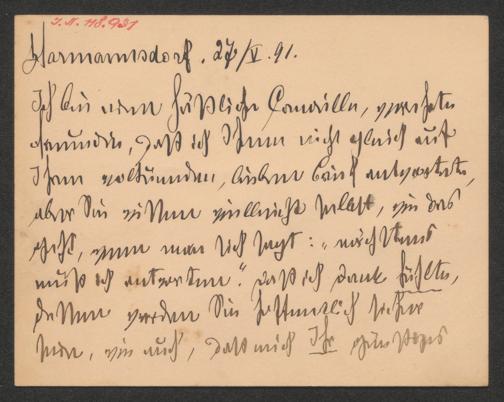 I. N. 118.931
Harmannsdorf. 27/V. 91.
Ich bin eine häßliche Canaille, verehrte
Freundin, daß ich Ihnen nicht gleich auf
Ihren reizenden, lieben Brief antwortete,
aber Sie wissen vielleicht selbst, wie das
geht, wenn man sich sagt: „nächstens
muß ich antworten." Daß ich Dank fühlte,
dessen werden Sie hoffentlich sicher
sein, wie auch, daß mich Ihr